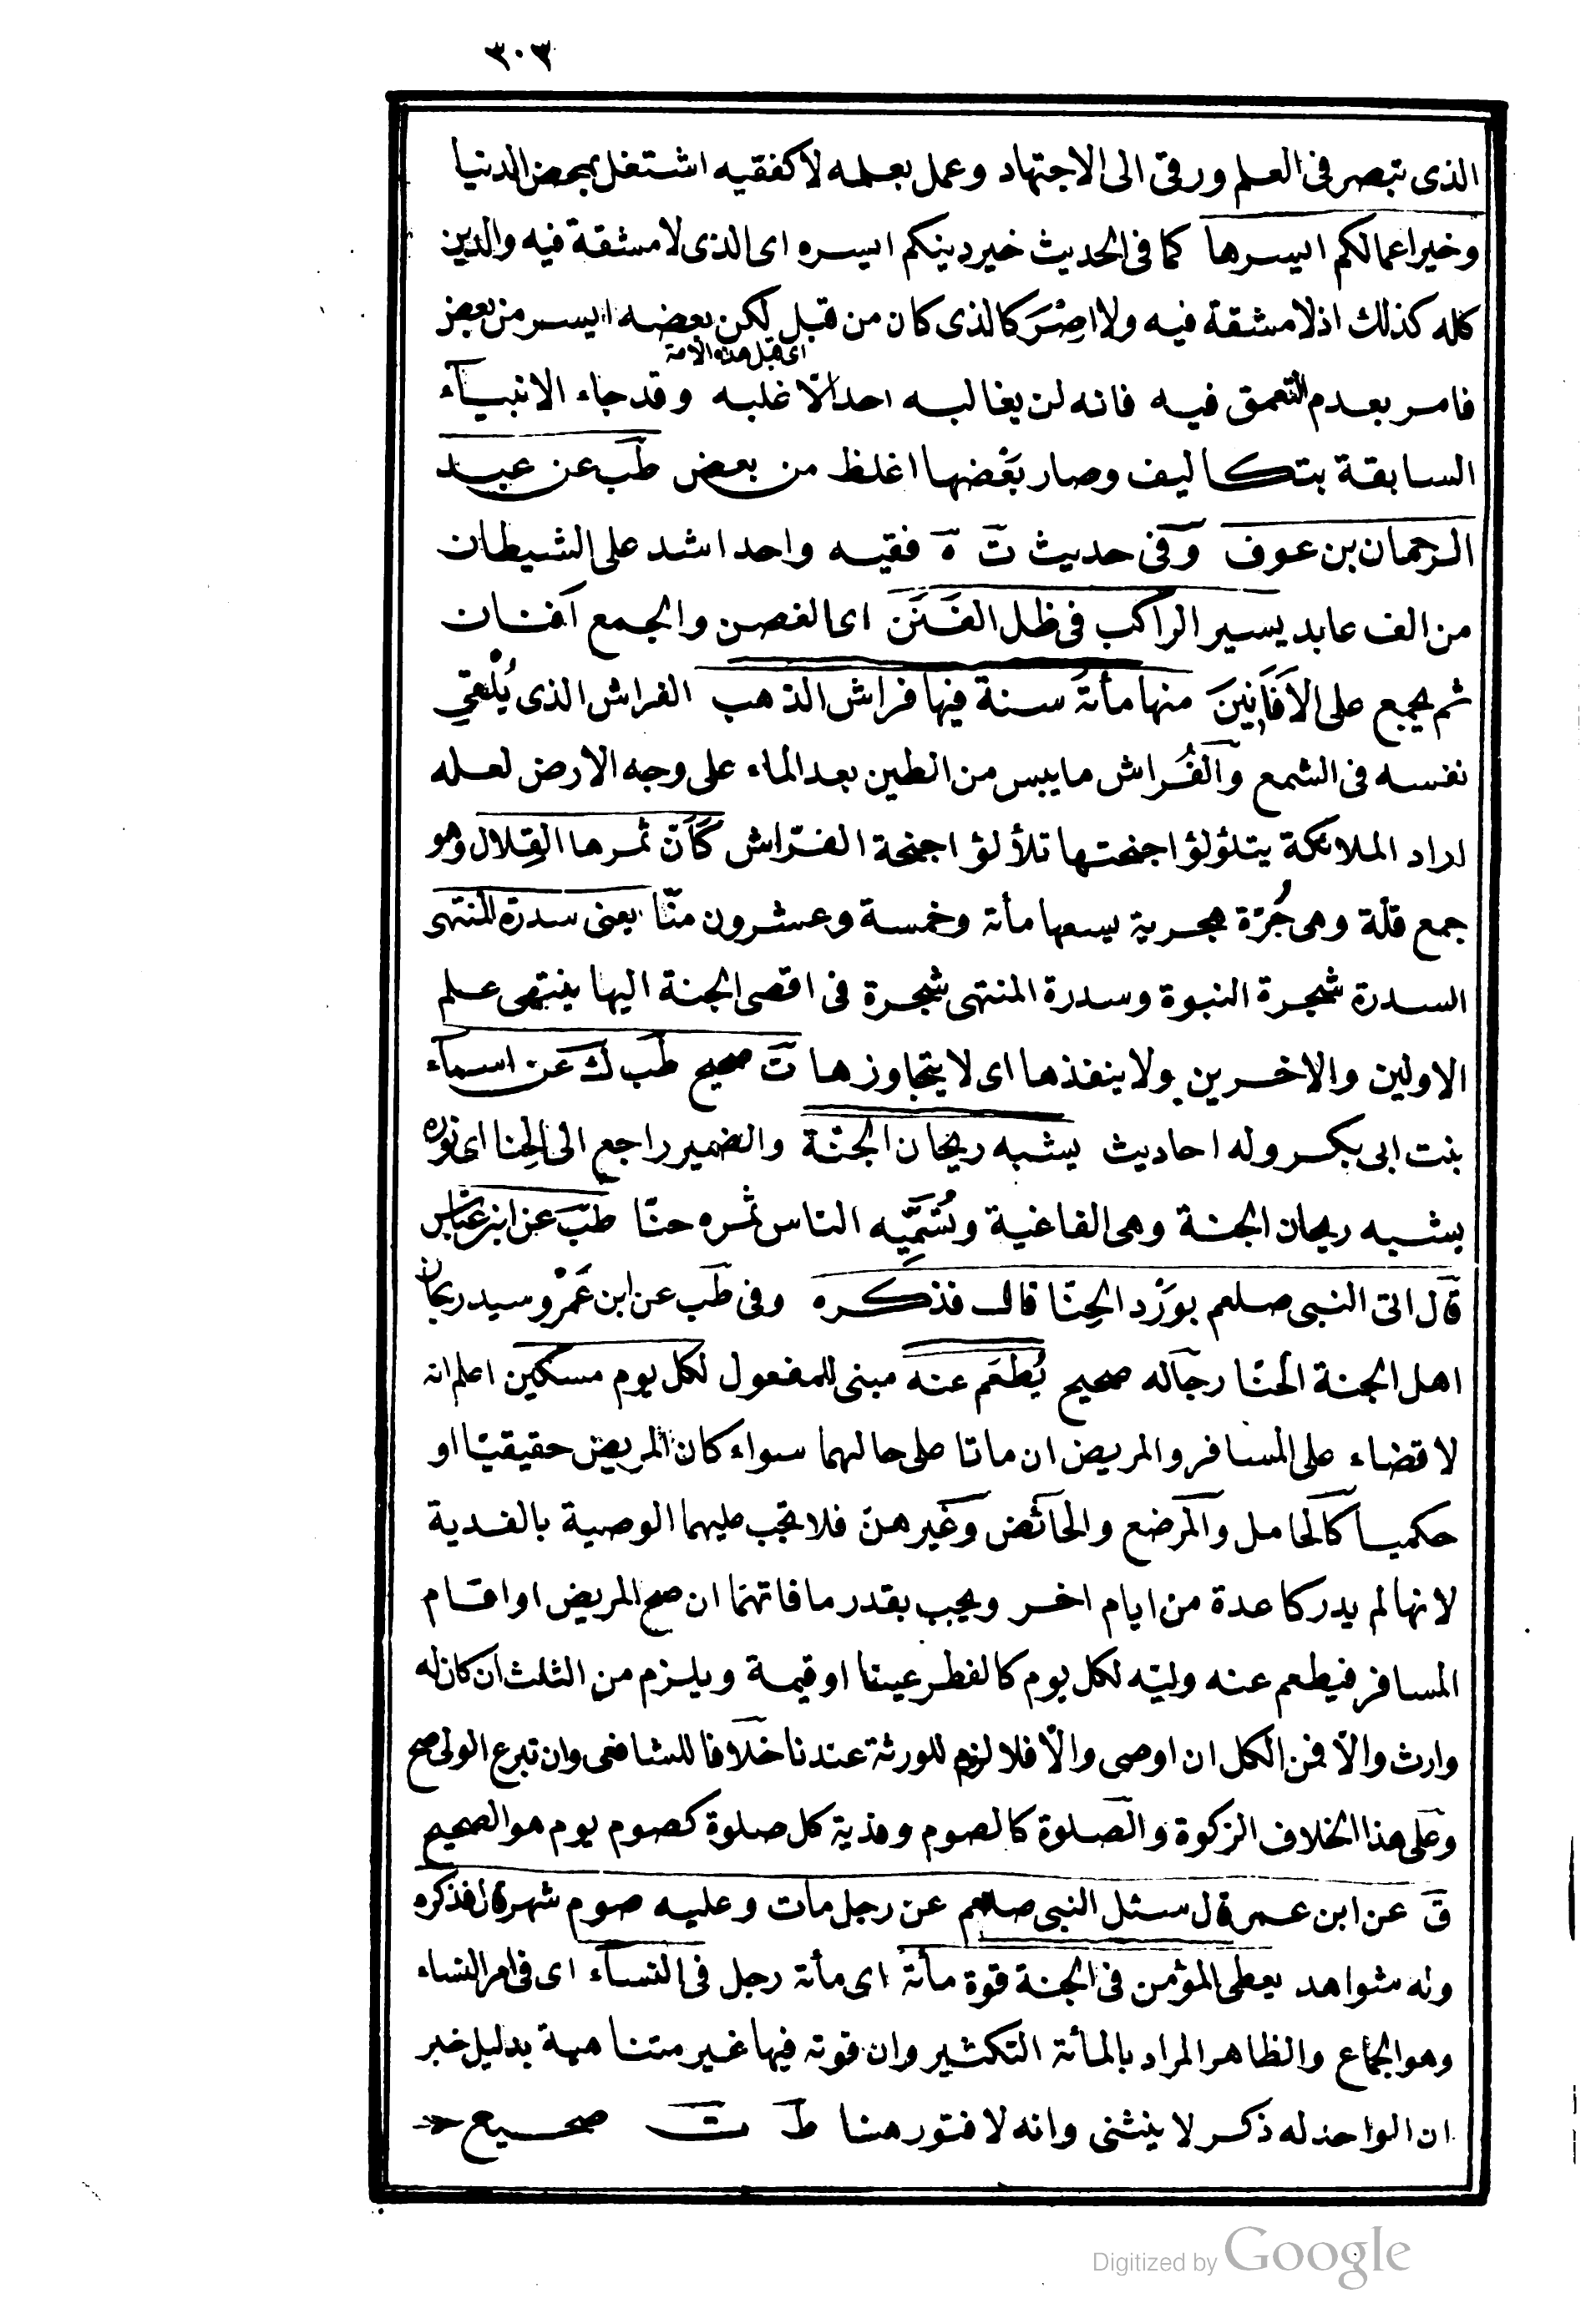 ٣٠٣
الذى تبصر فى العلم ورقى الى الاجتهاد وعمل بعلمه لا كفقيه اشتغل بمحض الدنيا
وخير اعمالكم ايسرها كما فى الحديث خير دينكم ايسره اى الذى لا مشقة فيه والدين
كله كذلك اذ لا مشقة فيه ولا اصْرَ كالذى كان من قبل لكن بعضه ايسر من بعض
اى قبل هذه الامة
فامر بعدم التعمق فيه فانه لن يغالبه احد الّا غلبه وقد جاء الانبيآء
السابقة بتكاليف وصار بَعْضها اغلظ من بعض طب عن عبد
الرحمان بن عوف وفى حديث ت ه فقيه واحد اشد على الشيطان
من الف عابد يسير الراكب فى ظل الفَنَن اى الغصن والجمع افنان
ثم يجمع على الاَفَانِينَ منها مأة سنة فيها فراش الذهب الفراش الذى يُلْقى
نفسه فى الشمع والفُراش ما يبس من الطين بعد الماء على وجه الارض لعله
اراد الملائكة يتلؤلؤ اجنحتها تلألؤ اجنحة الفرّاش كَأَنّ ثمرها القِلال وهو
جمع قلّة وهى جُرّة هجرية يسعها مأة وخمسة وعشرون منّا يعنى سدرة المنتهى
السدرة شجرة النبوة وسدرة المنتهى شجرة فى اقصى الجنة اليها ينتهى علم
الاولين والاخرين ولا ينفذها اى لا يتجاوزها ت صحيح طب ك عن اسمآء
بنت ابى بكر وله احاديث يشبه ريحان الجنّة والضمير راجع الى الحِنا اى نوره
يشبه ريحان الجنة وهى الفاغية ويُسَمِّيه الناس ثمره حنّا طب عن ابن عباس
قال اتى النبى صلعم بوَرْد الحِنّا قال فذكره وفى طب عن ابن عَمْرو سيد ريحان
اهل الجنة الحنّا رجاله صحيح يُطعَم عنه مبنى للمفعول لكل يوم مسكين اعلم انه
لا قضاء على المسافر والمريض ان ماتا على حالهما سواء كان المريض حقيقيّا او
حكميا كالحامل والمرضع والحائض وغيرهنّ فلا تجب عليهما الوصية بالفدية
لانهما لم يدركا عدة من ايام اخر ويجب بقدر ما فاتهما ان صح المريض او اقام
المسافر فيطعم عنه وليّه لكل يوم كالفطر عينا او قيمة ويلزم من الثلث ان كان له
وارث والّا فمن الكل ان اوصى والّا فلا لزم للورثة عندنا خلافا للشافعى وان تبرع الولى صح
وعلى هذا الخلاف الزكوة والصلوة كالصوم وفدية كل صلوة كصوم يوم هو الصحيح
ق عن ابن عمر قال سئل النبى صلعم عن رجل مات وعليه صوم شهر قال فذكره
وله شواهد يعطى المؤمن فى الجنة قوة مأة اى مأة رجل فى النسآء اى فى امر النساء
وهو الجماع والظاهر المراد بالمأة التكثير وان قوته فيها غير متناهية بدليل خبر
ان الواحد له ذكر لا ينثنى وانه لا فتور هنا ط ت صحيح
Digitized by Google